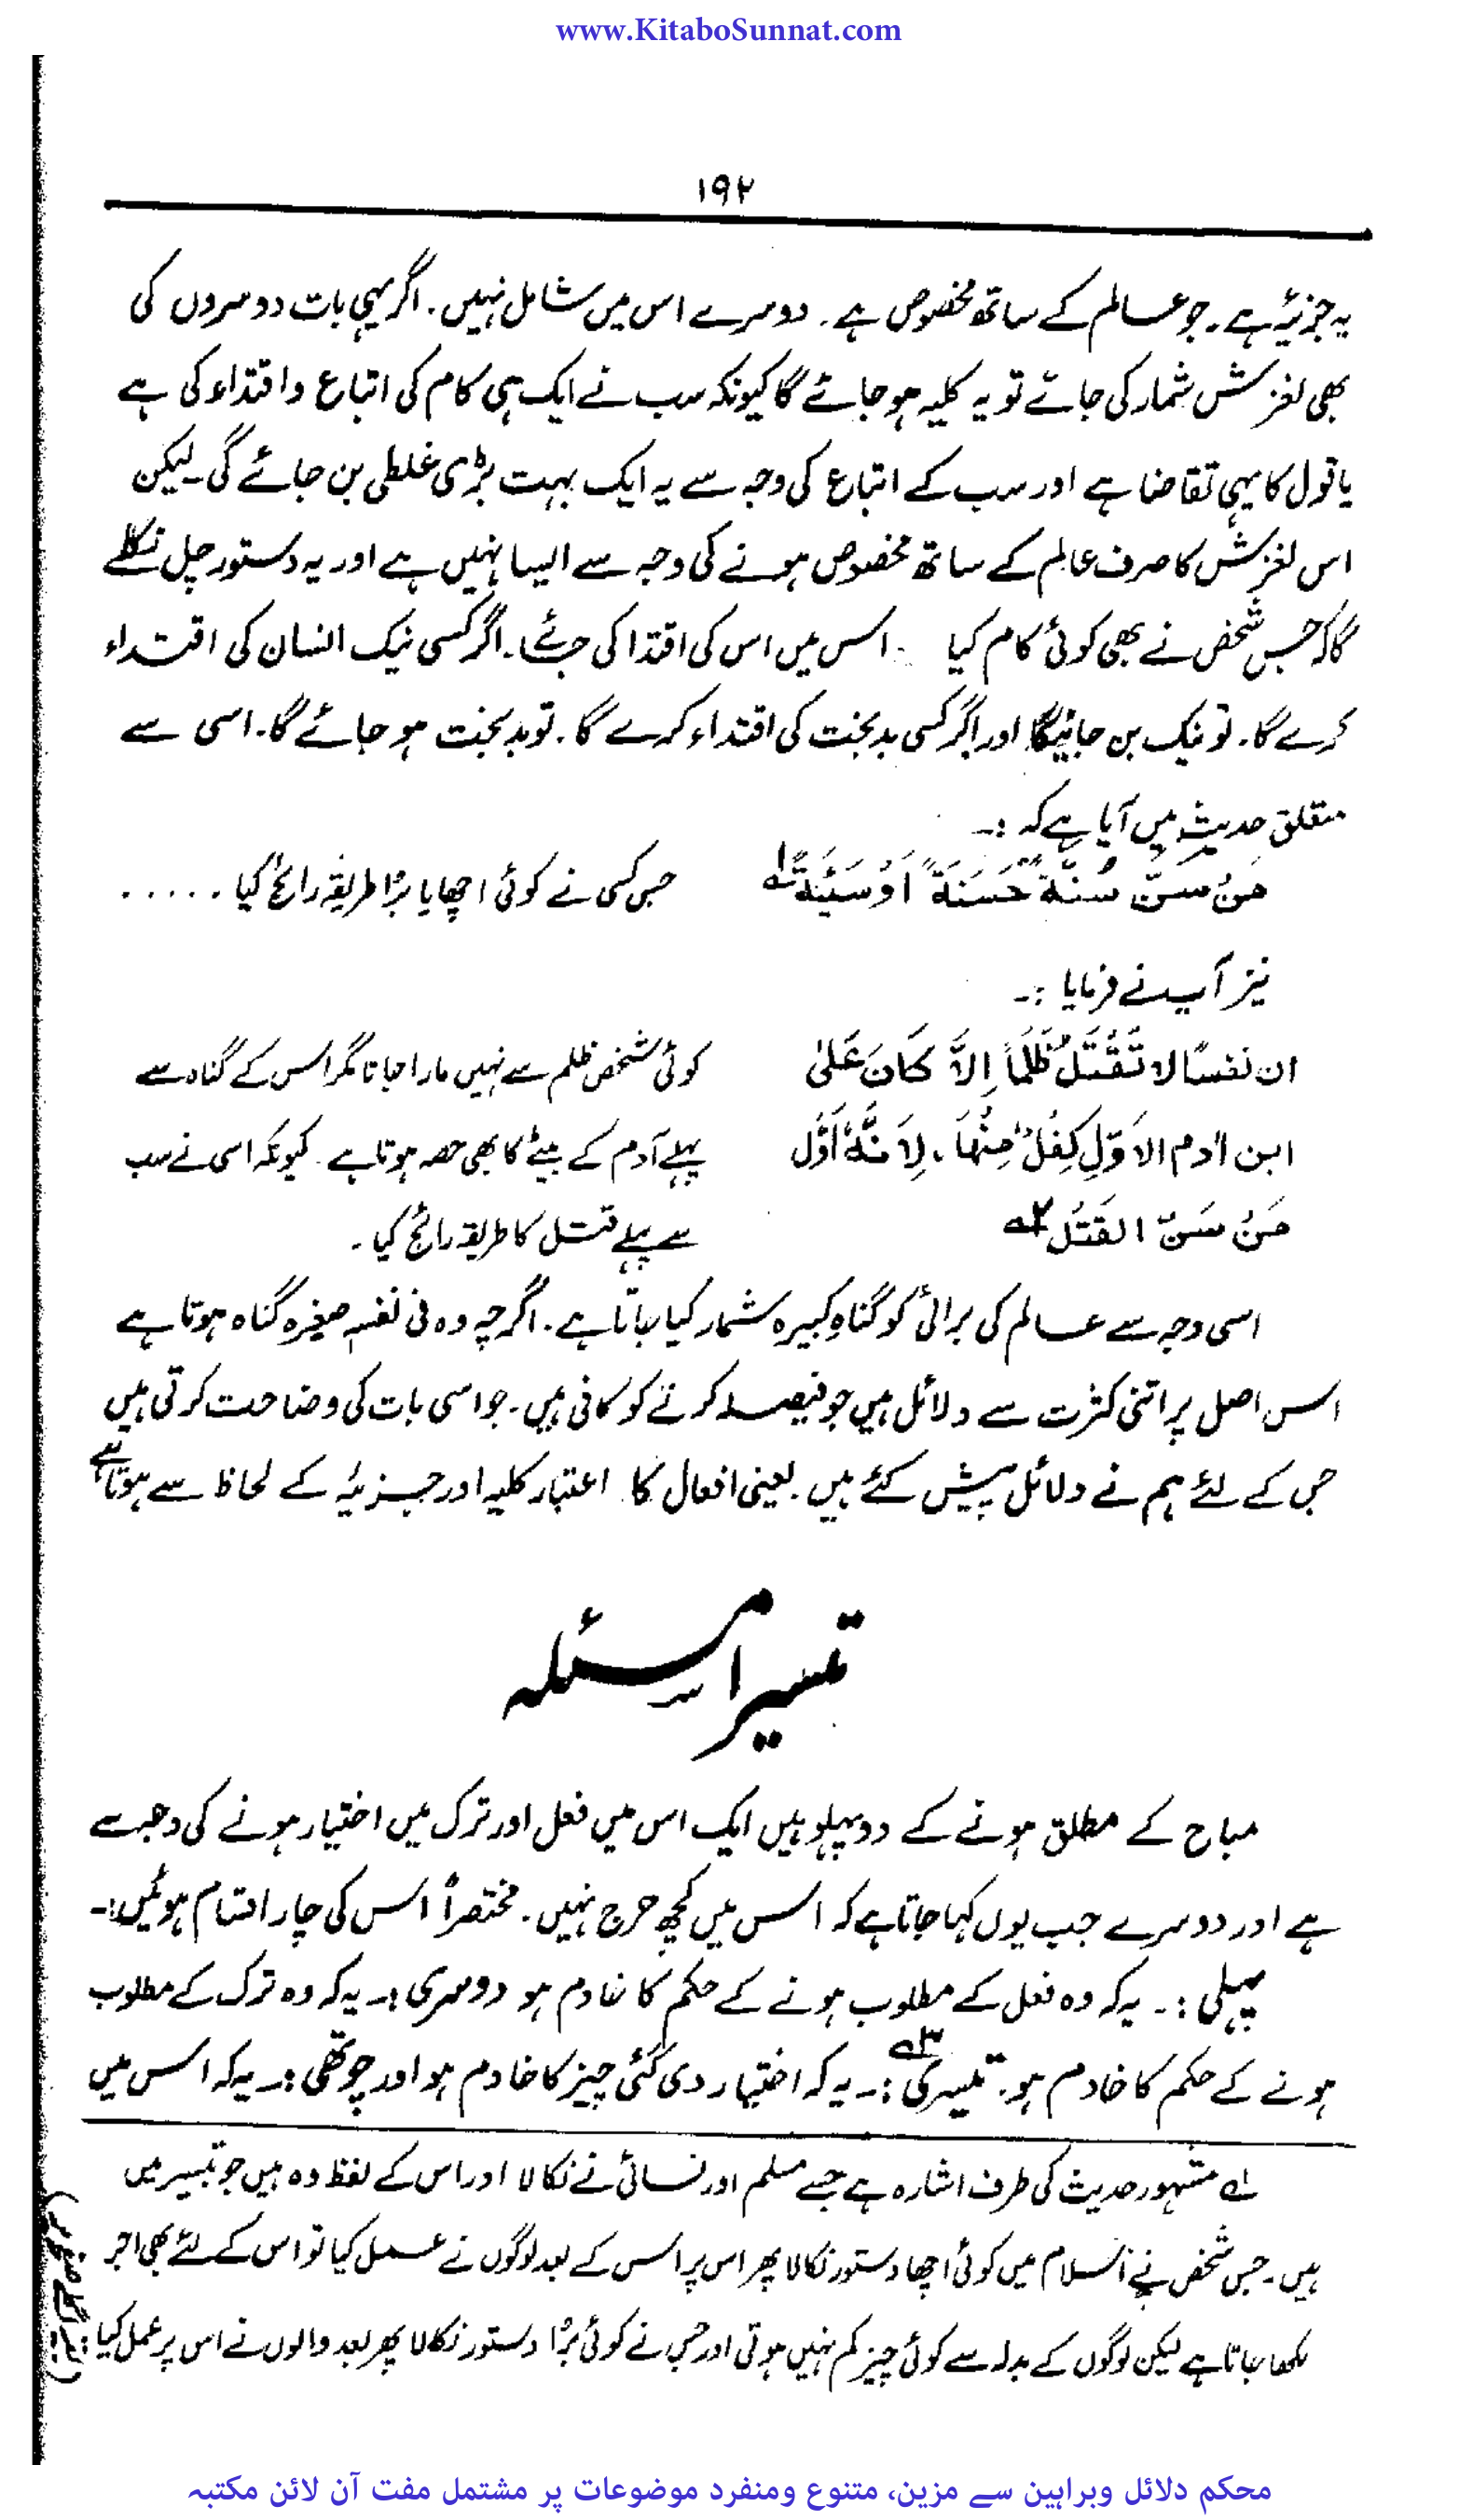 www.KitaboSunnat.com
۱۹۲
یہ جزئیہ ہے۔ جو عالم کے ساتھ مخصوص ہے۔ دوسرے اس میں شامل نہیں۔ اگر یہی بات دوسروں کی
بھی لغزش شمار کی جائے تو یہ کلیہ ہو جائے گا کیونکہ سب نے ایک ہی کام کی اتباع واقتداء کی ہے
یا قول کا یہی تقاضا ہے اور سب کے اتباع کی وجہ سے یہ ایک بہت بڑی غلطی بن جائے گی۔ لیکن
اس لغزش کا صرف عالم کے ساتھ مخصوص ہونے کی وجہ سے ایسا نہیں ہے اور یہ دستور چل نکلے
گا کہ جس شخص نے بھی کوئی کام کیا اس میں اس کی اقتدا کی جائے۔ اگر کسی نیک انسان کی اقتداء
کرے گا۔ تو نیک بن جائیگا اور اگر کسی بدبخت کی اقتداء کرے گا۔ تو بدبخت ہو جائے گا۔ اسی سے
متعلق حدیث میں آیا ہے کہ :۔
مَنْ سَنَّ سُنَّةً حَسَنَةً اَوْ سَيِّئَةً لہ جس کسی نے کوئی اچھا یا بُرا طریقہ رائج کیا ......
نیز آپ نے فرمایا :۔
ان نفسًا لا تُقْتَلُ ظُلْمًا اِلاَّ كَانَ عَلىٰ کوئی شخص ظلم سے نہیں مارا جاتا مگر اس کے گناہ سے
ابن اٰدم الاَوَّلِ كِفْلٌ مِنْهَا، لِاَنَّهٗ اَوَّل پہلے آدم کے بیٹے کا بھی حصہ ہوتا ہے۔ کیونکہ اسی نے سب
مَنْ سَنَّ القَتْلَ ۲ہ سے پہلے قتل کا طریقہ رائج کیا۔
اسی وجہ سے عالم کی برائی کو گناہِ کبیرہ شمار کیا جاتا ہے۔ اگرچہ وہ فی نفسہ صغیرہ گناہ ہوتا ہے
اس اصل پر اتنی کثرت سے دلائل ہیں جو فیصلہ کرنے کو کافی ہیں۔ جو اسی بات کی وضاحت کرتی ہیں
جس کے لئے ہم نے دلائل پیش کئے ہیں۔ یعنی افعال کا اعتبار کلیہ اور جزئیہ کے لحاظ سے ہوتا ہے
تیسرا مسئلہ
مباح کے مطلق ہونے کے دو پہلو ہیں ایک اس میں فعل اور ترک میں اختیار ہونے کی وجہ سے
ہے اور دوسرے جب یوں کہا جاتا ہے کہ اس میں کچھ حرج نہیں۔ مختصراً اس کی چار اقسام ہوئیں:۔
پہلی :۔ یہ کہ وہ فعل کے مطلوب ہونے کے حکم کا خادم ہو دوسری :۔ یہ کہ وہ ترک کے مطلوب
ہونے کے حکم کا خادم ہو۔ تیسری ۳ہ :۔ یہ کہ اختیار دی گئی چیز کا خادم ہو اور چوتھی :۔ یہ کہ اس میں
لہ مشہور حدیث کی طرف اشارہ ہے جسے مسلم اور نسائی نے نکالا اور اس کے لفظ وہ ہیں جو تیسیر میں
ہیں۔ جس شخص نے اسلام میں کوئی اچھا دستور نکالا پھر اس پر اس کے بعد لوگوں نے عمل کیا تو اس کے لئے بھی اجر
لکھا جاتا ہے لیکن لوگوں کے بدلہ سے کوئی چیز کم نہیں ہوتی اور جس نے کوئی بُرا دستور نکالا پھر بعد والوں نے اس پر عمل کیا :
محکم دلائل وبراہین سے مزین، متنوع ومنفرد موضوعات پر مشتمل مفت آن لائن مکتبہ